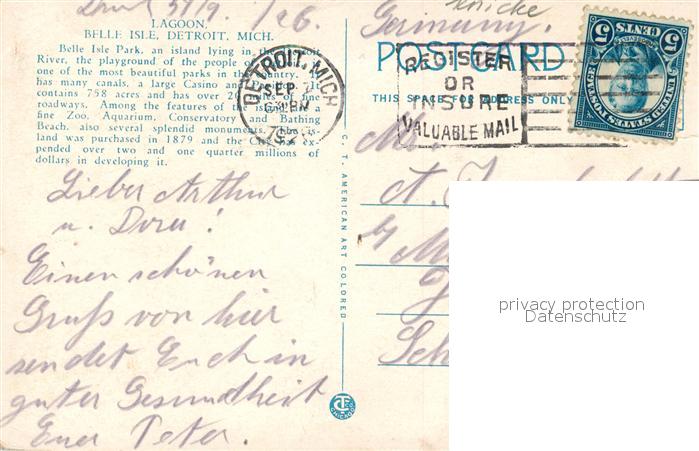 /26.
Germany.
Knicke
LAGOON,
BELLE ISLE, DETROIT, MICH.
Belle Isle Park, an island lying in the Detroit
River, the playground of the people of
one of the most beautiful parks in the country. It
has many canals, a large Casino and
contains 758 acres and has over 20 miles of fine
roadways. Among the features of the island are a
fine Zoo, Aquarium, Conservatory and Bathing
Beach, also several splendid monuments. The is-
land was purchased in 1879 and the City has ex-
pended over two and one quarter millions of
dollars in developing it.
DETROIT, MICH.
SEP 7
POSTCARD
THIS SPACE FOR ADDRESS ONLY
REGISTER
OR
INSURE
VALUABLE MAIL
5 CENTS 5
UNITED STATES POSTAGE
Lieber Arthur
u. Dora!
Einen schönen
Gruß von hier
sendet Euch in
guter Gesundheit
Euer Peter.
C. T. AMERICAN ART COLORED
CHICAGO
Mr.
A.
Sch
privacy protection
Datenschutz